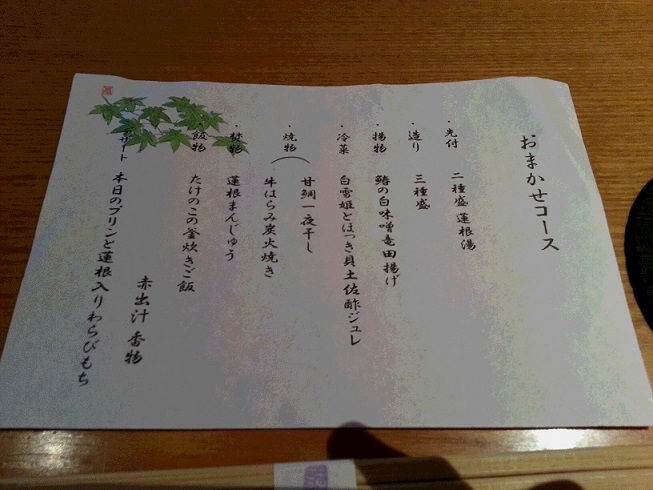 おまかせコース
・先付 二種盛 蓮根湯
・造り 三種盛
・揚物 鰆の白味噌竜田揚げ
・冷菜 白雪姫とほっき貝土佐酢ジュレ
・焼物 甘鯛一夜干し
牛はらみ炭火焼き
蓮根まんじゅう
・飯物 たけのこの釜炊きご飯
赤出汁 香物
本日のプリンと蓮根入りわらびもち